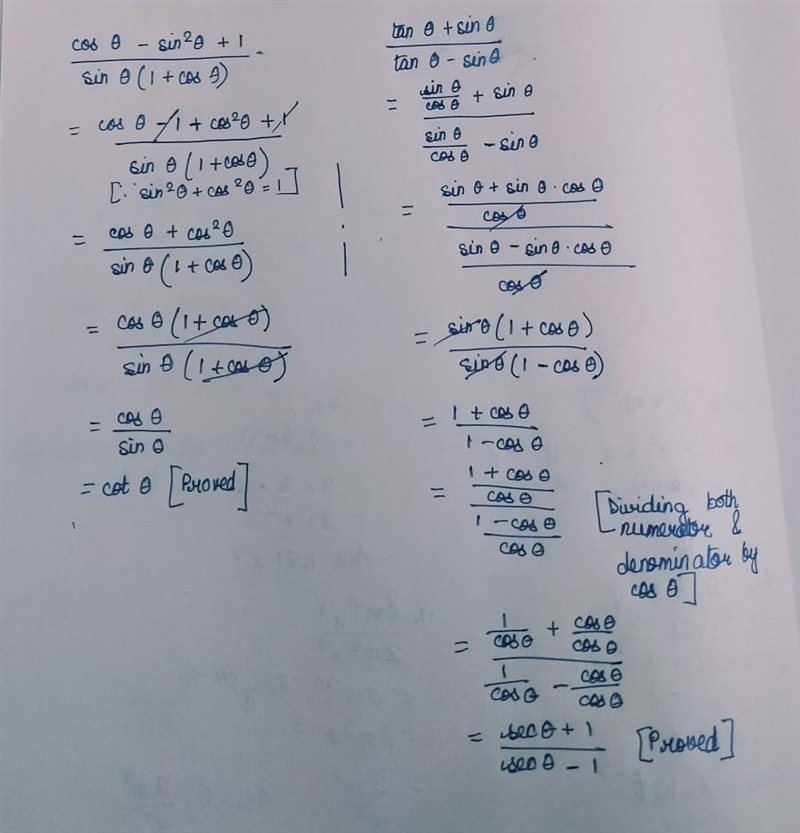 cos θ - sin²θ + 1 / sin θ (1 + cos θ)
= cos θ - 1 + cos²θ + 1 / sin θ (1 + cosθ)
[∵ sin²θ + cos²θ = 1]
= cos θ + cos²θ / sin θ (1 + cos θ)
= cos θ (1 + cos θ) / sin θ (1 + cos θ)
= cos θ / sin θ
= cot θ [Proved]
tan θ + sin θ / tan θ - sin θ
= sin θ / cos θ + sin θ / sin θ / cos θ - sin θ
= sin θ + sin θ · cos θ / cos θ / sin θ - sin θ · cos θ / cos θ
= sin θ (1 + cos θ) / sin θ (1 - cos θ)
= 1 + cos θ / 1 - cos θ
= 1 + cos θ / cos θ / 1 - cos θ / cos θ
[Dividing both
numerator &
denominator by
cos θ]
= 1 / cos θ + cos θ / cos θ / 1 / cos θ - cos θ / cos θ
= sec θ + 1 / sec θ - 1 [Proved]